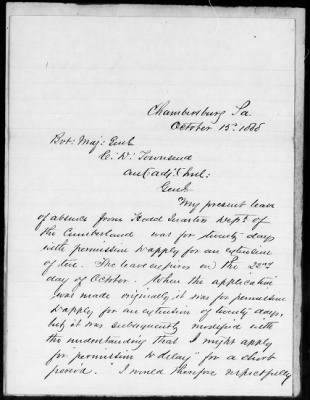 Chambersburg Pa.
October 15th 1868
Bvt: Maj: Genl
E. D. Townsend
Asst Adjt Genl:
Genl
My present leave
of absence from Head Quarters Dept. of
the Cumberland was for twenty days
with permission to apply for an extension
of ten. The leave expires on the 22nd
day of October. When the application
was made originally it was for permission
to apply for an extension of twenty days,
but it was subsequently modified with
the understanding that I might apply
for "permission to delay" for a short
period. I would therefore respectfully